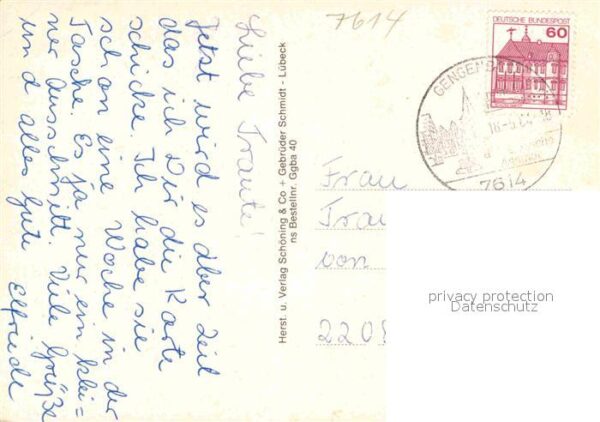 7614
DEUTSCHE BUNDESPOST
60
GENGENB
7614
Liebe Traute!
Jetzt wird es aber Zeit
das ich Dir die Karte
schicke. Ich habe sie
schon eine Woche in der
Tasche. Es ja nur ein klei=
ner Ausschnitt. Viele Grüße
und alles Gute
Elfriede
Herst. u. Verlag Schöning & Co + Gebrüder Schmidt - Lübeck
ns Bestellnr. Ggba 40
Frau
Trau
von
2208
privacy protection
Datenschutz